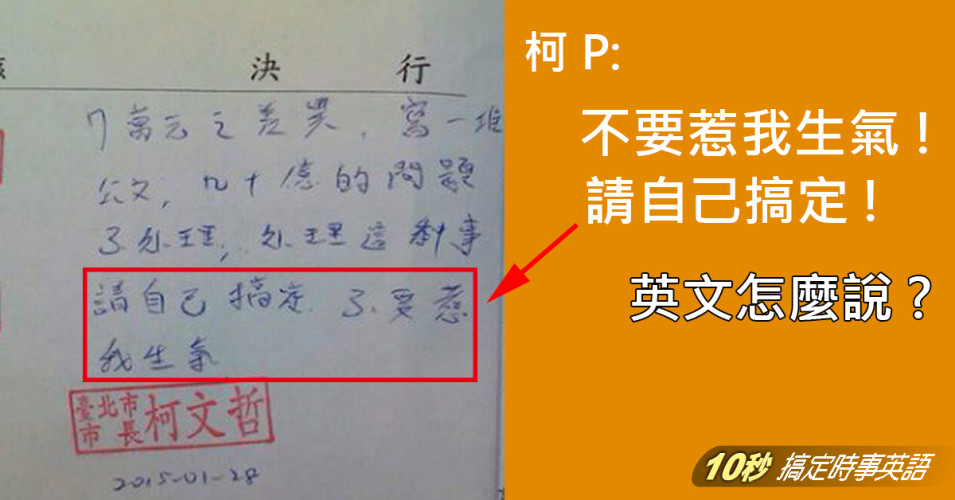 決 行
7萬元之差異，寫一堆
公文，九十億的問題
不处理，处理這種事
請自己搞定．不要惹
我生氣
臺北市
市長
柯文哲
2015-01-28
柯 P:
不要惹我生氣！
請自己搞定！
英文怎麼說？
10秒 搞定時事英語